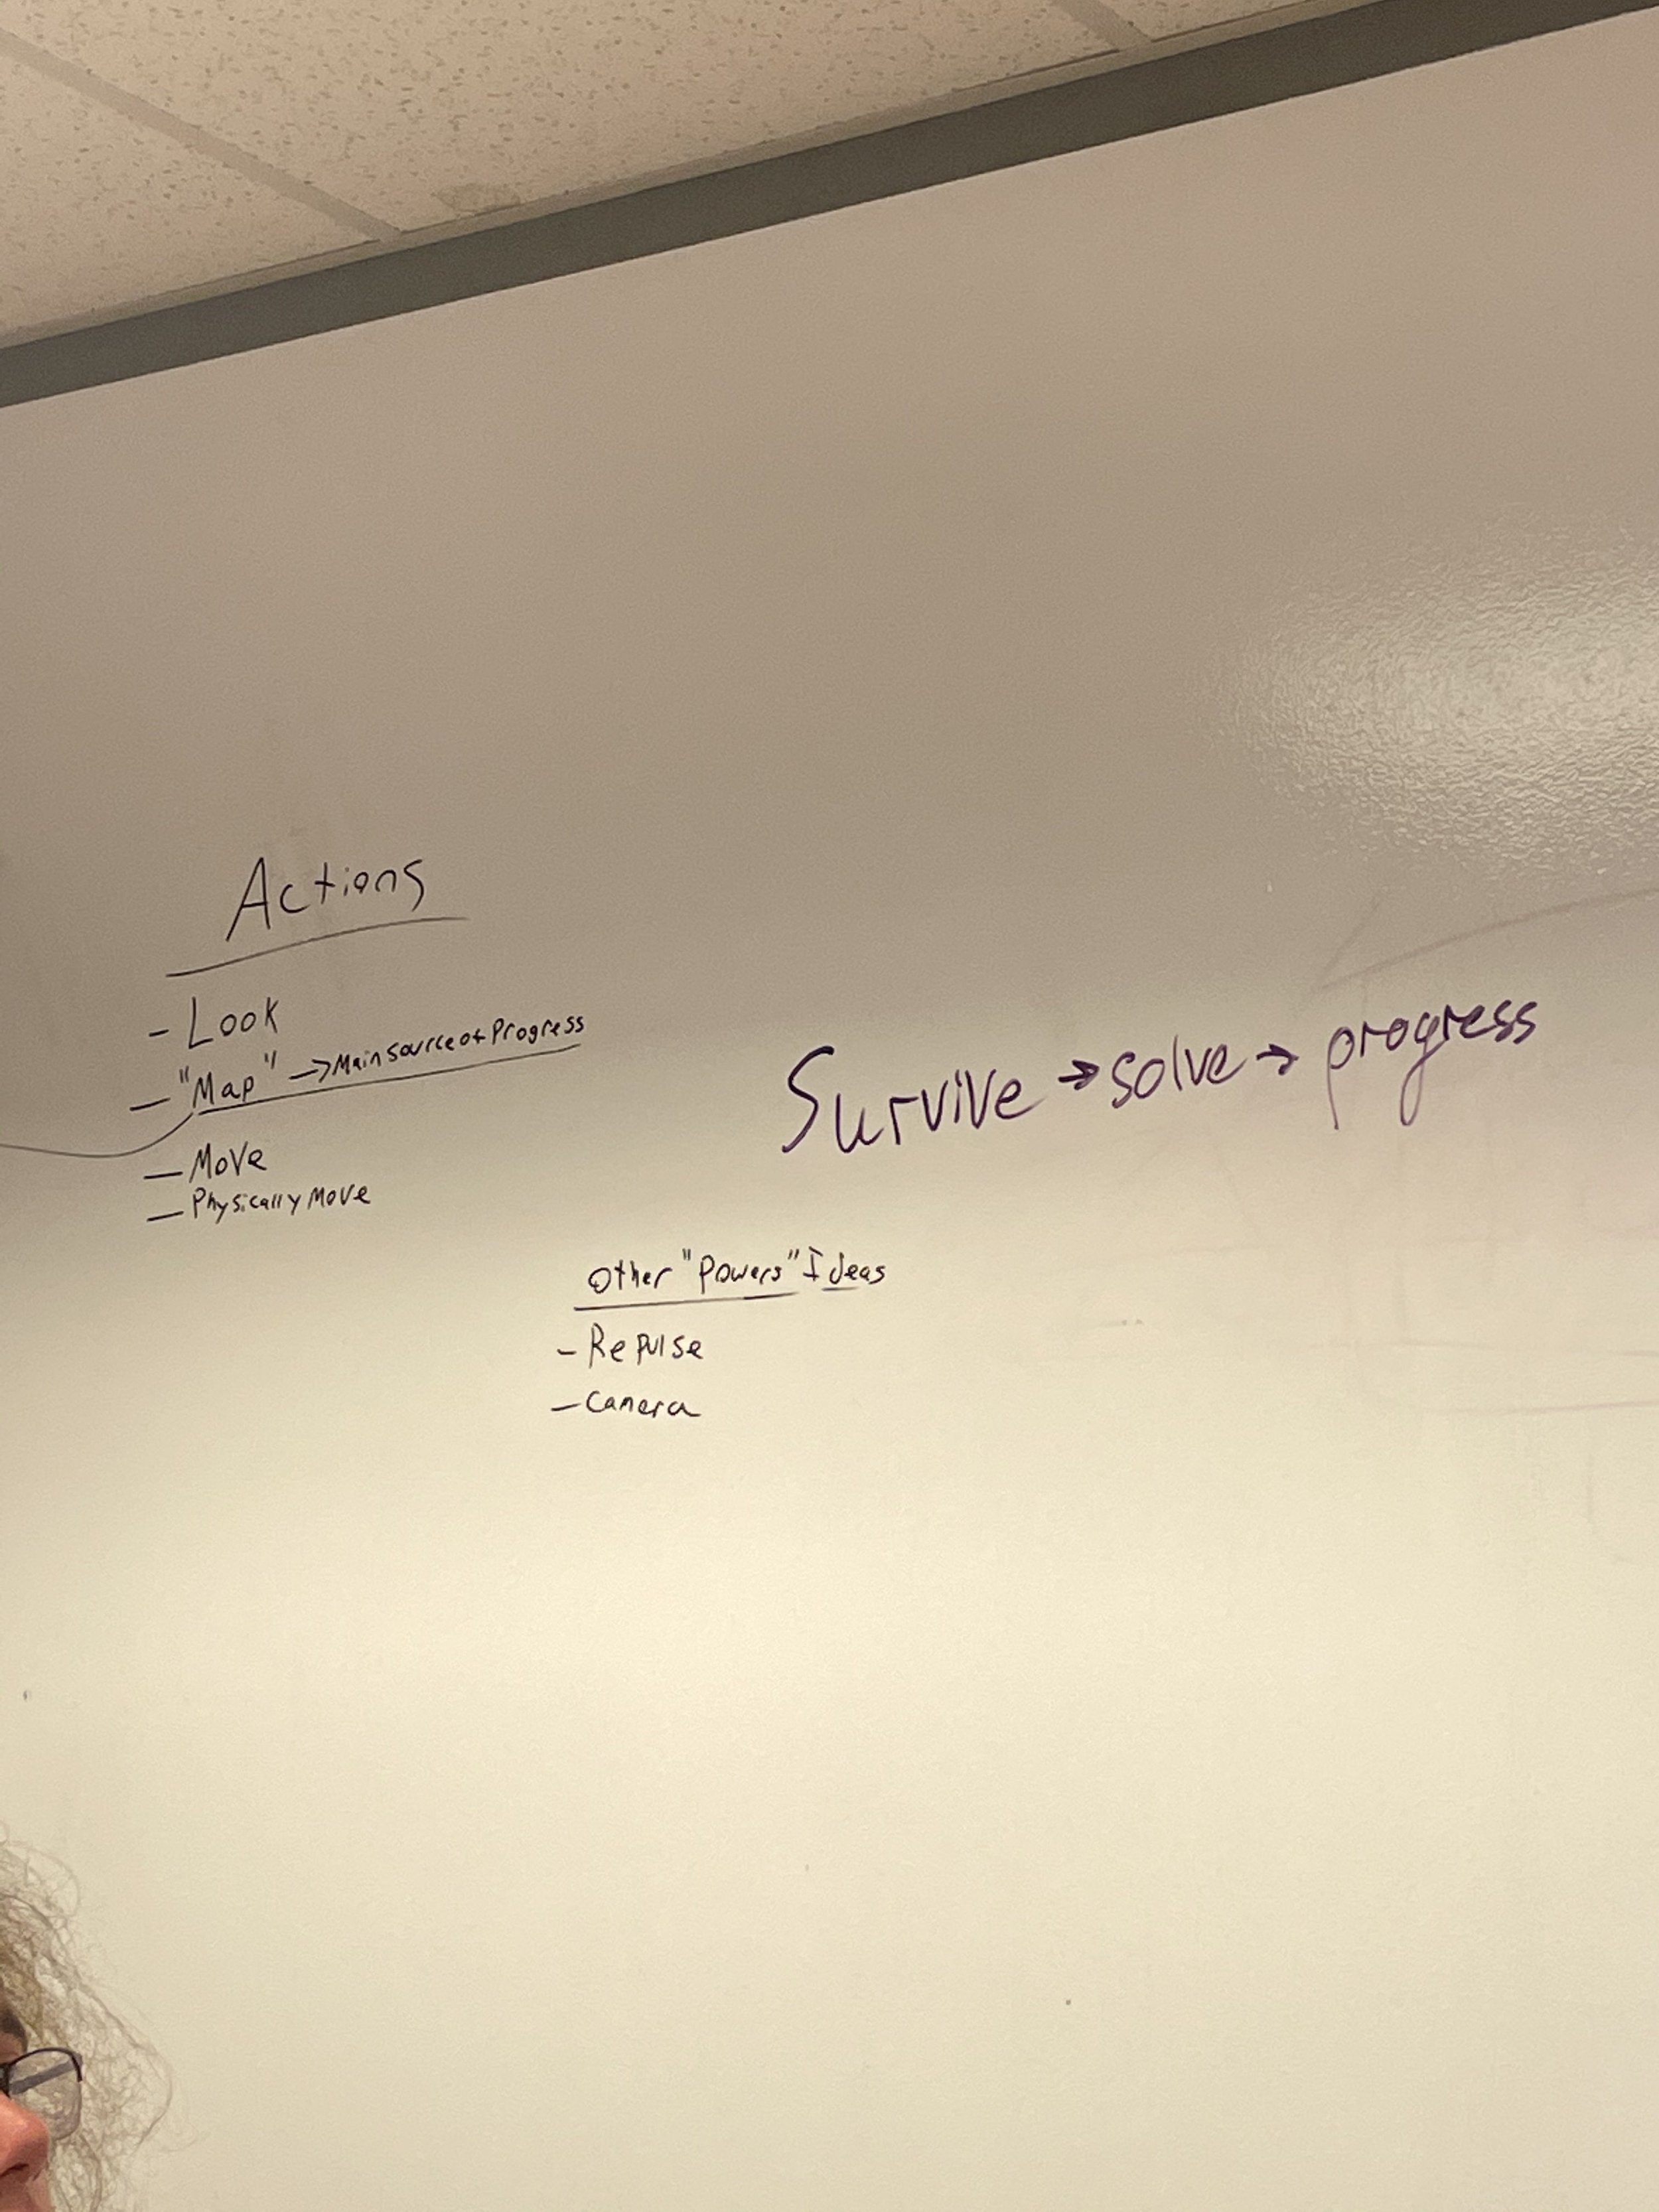 Actions
- Look
- "Map" → Main source of Progress
- Move
- Physically Move
Survive → solve → progress
Other "Powers" Ideas
- Repulse
- Camera